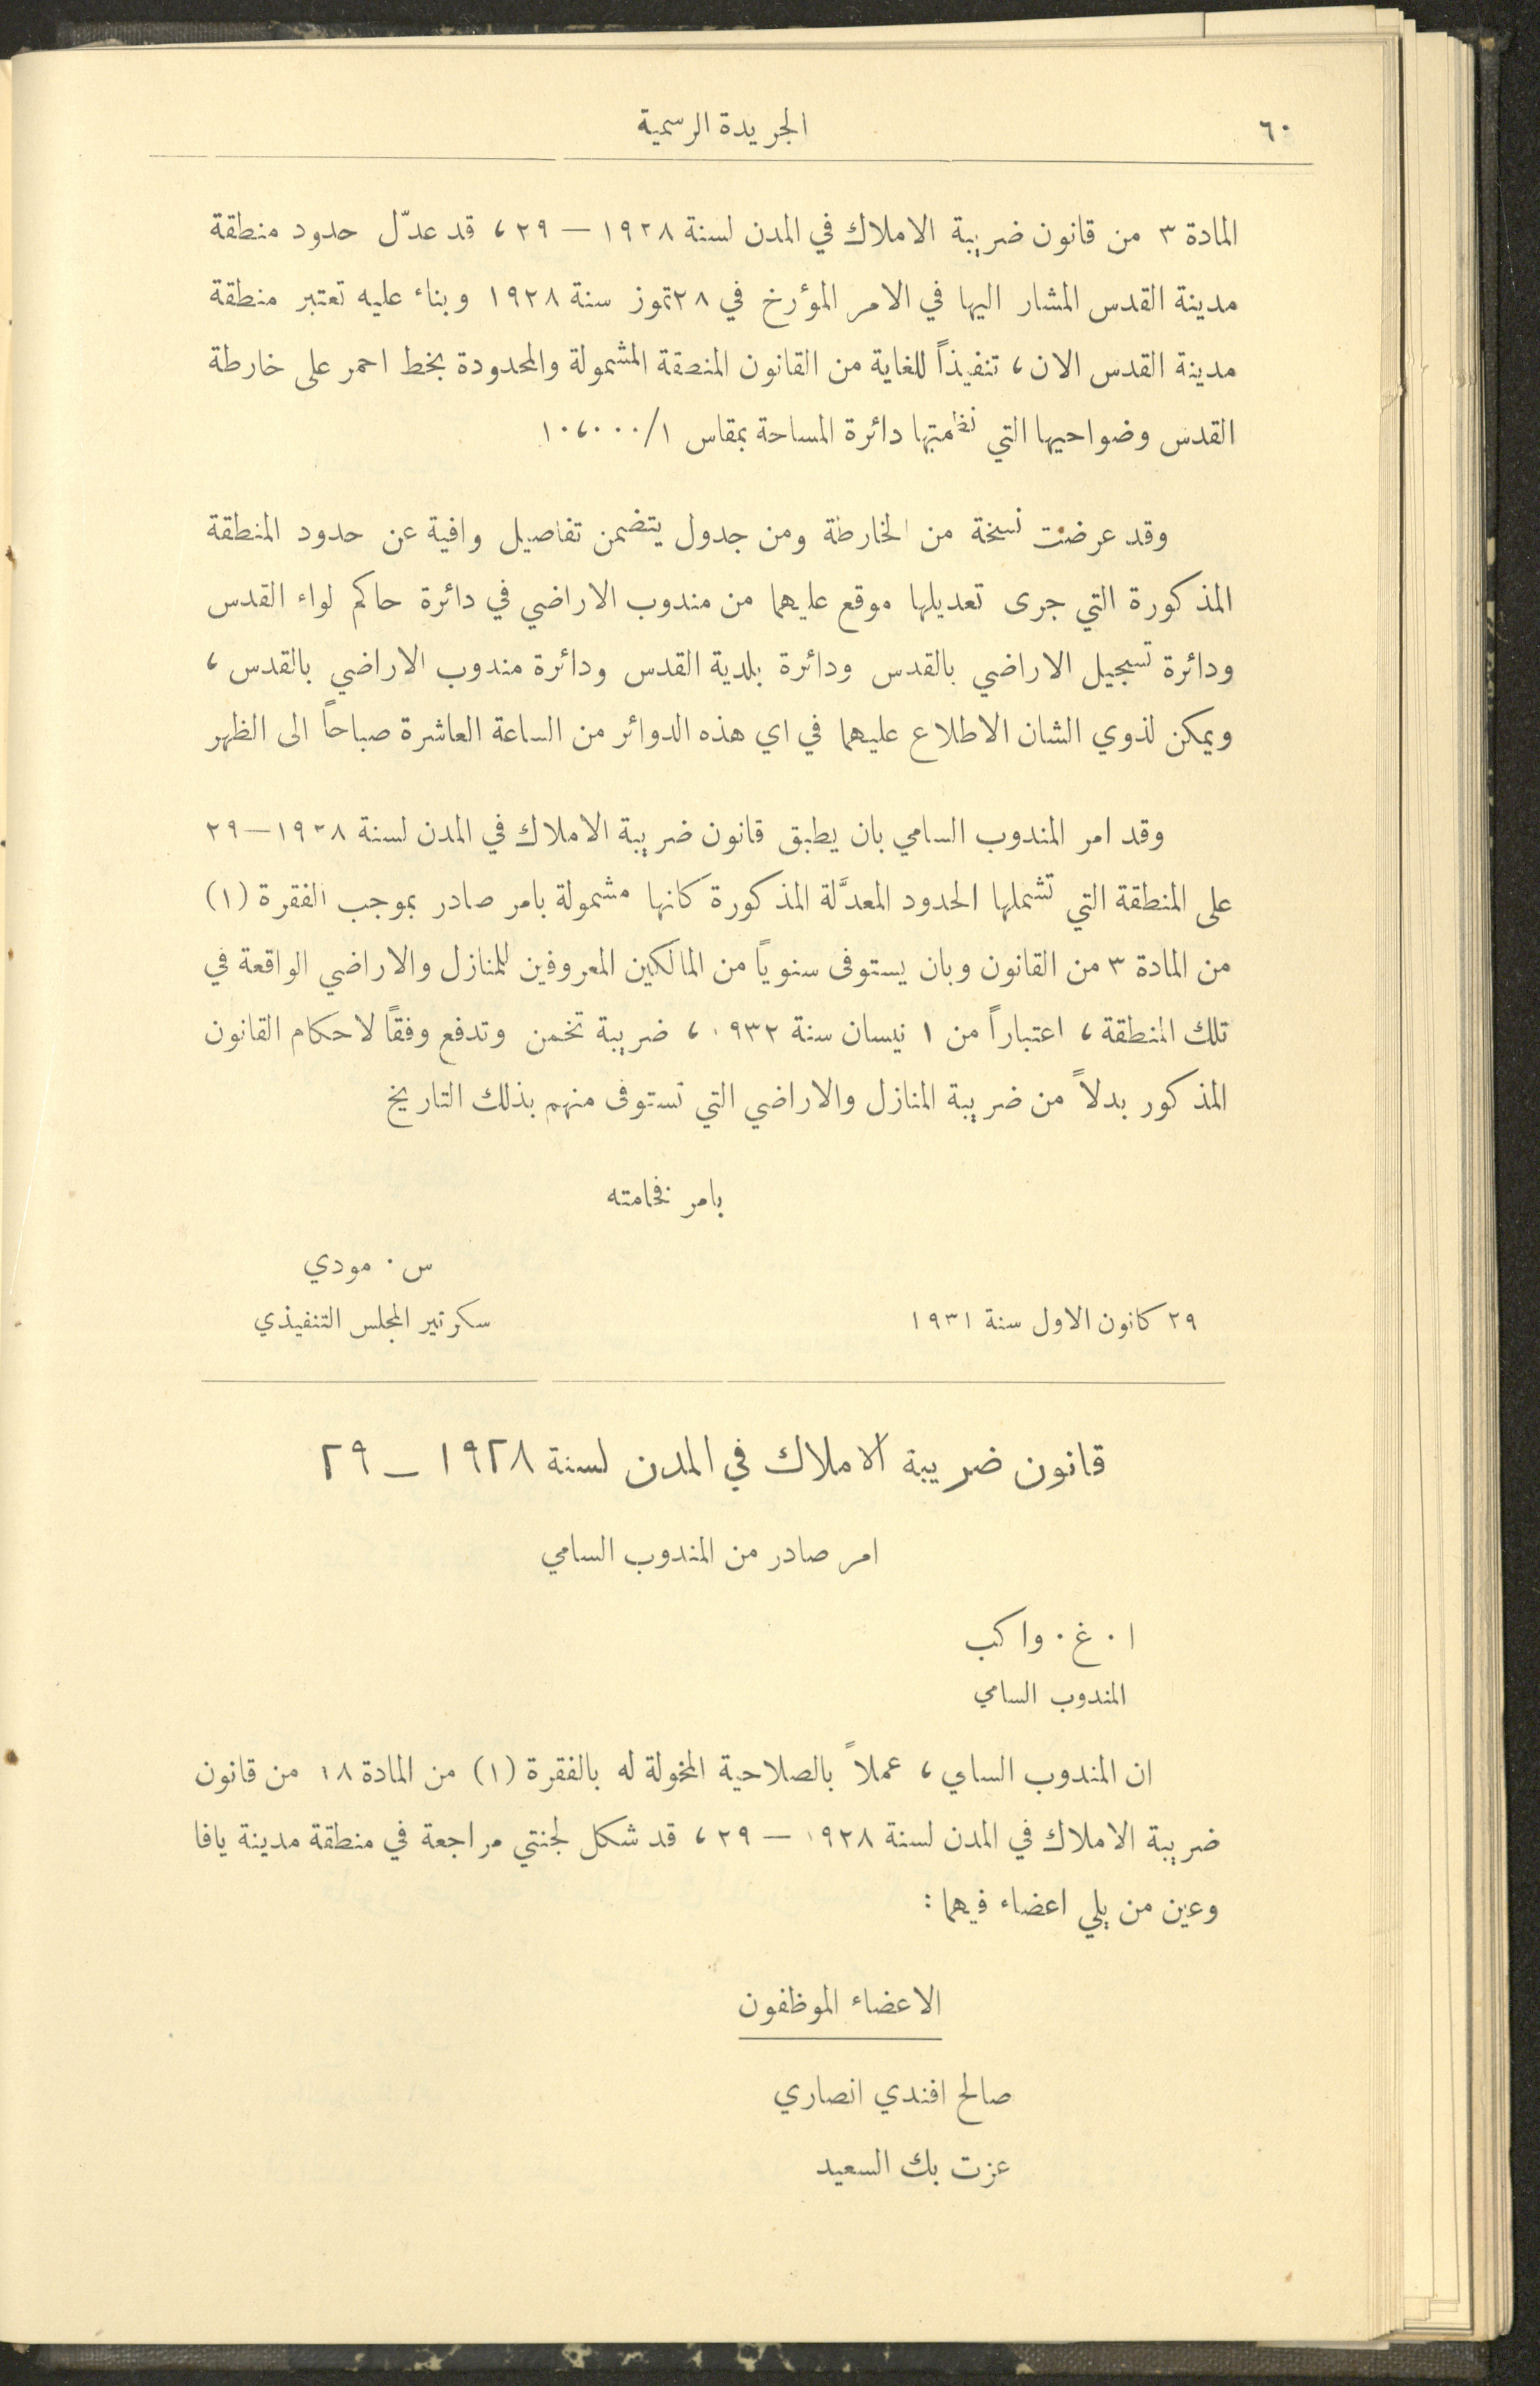 ٦٠
الجريدة الرسمية
المادة ٣ من قانون ضريبة الاملاك في المدن لسنة ١٩٢٨ — ٢٩ ، قد عدّل حدود منطقة
مدينة القدس المشار اليها في الامر المؤرخ في ٢٨ تموز سنة ١٩٢٨ وبناء عليه تعتبر منطقة
مدينة القدس الان ، تنفيذاً للغاية من القانون المنطقة المشمولة والمحدودة بخط احمر على خارطة
القدس وضواحيها التي نظمتها دائرة المساحة بمقاس ١/١٠،٠٠٠
وقد عرضت نسخة من الخارطة ومن جدول يتضمن تفاصيل وافية عن حدود المنطقة
المذكورة التي جرى تعديلها موقع عليهما من مندوب الاراضي في دائرة حاكم لواء القدس
ودائرة تسجيل الاراضي بالقدس ودائرة بلدية القدس ودائرة مندوب الاراضي بالقدس ،
ويمكن لذوي الشان الاطلاع عليهما في اي هذه الدوائر من الساعة العاشرة صباحاً الى الظهر
وقد امر المندوب السامي بان يطبق قانون ضريبة الاملاك في المدن لسنة ١٩٢٨—٢٩
على المنطقة التي تشملها الحدود المعدَّلة المذكورة كانها مشمولة بامر صادر بموجب الفقرة (١)
من المادة ٣ من القانون وبان يستوفى سنوياً من المالكين المعروفين للمنازل والاراضي الواقعة في
تلك المنطقة ، اعتباراً من ١ نيسان سنة ١٩٣٢ ، ضريبة تخمن وتدفع وفقاً لاحكام القانون
المذكور بدلاً من ضريبة المنازل والاراضي التي تستوفى منهم بذلك التاريخ
بامر فخامته
س . مودي
٢٩ كانون الاول سنة ١٩٣١
سكرتير المجلس التنفيذي
قانون ضريبة الاملاك في المدن لسنة ١٩٢٨ — ٢٩
امر صادر من المندوب السامي
ا . غ . واكب
المندوب السامي
ان المندوب السامي ، عملاً بالصلاحية المخولة له بالفقرة (١) من المادة ١٨ من قانون
ضريبة الاملاك في المدن لسنة ١٩٢٨ — ٢٩ ، قد شكل لجنتي مراجعة في منطقة مدينة يافا
وعين من يلي اعضاء فيهما :
الاعضاء الموظفون
صالح افندي انصاري
عزت بك السعيد